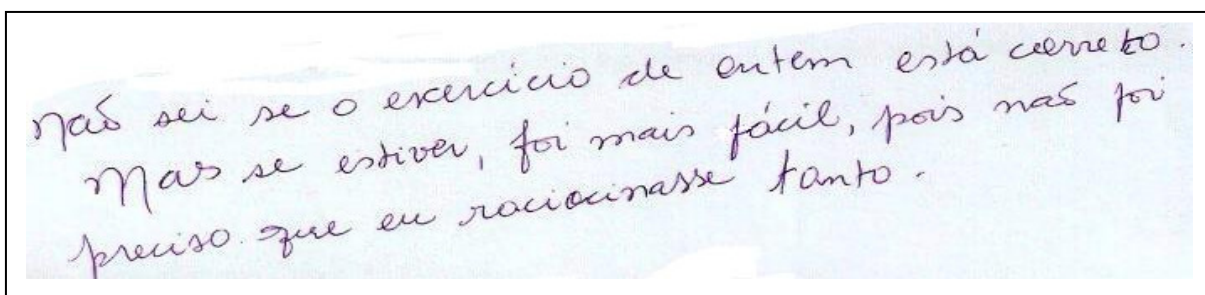 Não sei se o exercício de ontem está correto.
Mas se estiver, foi mais fácil, pois não foi
preciso que eu raciocinasse tanto.